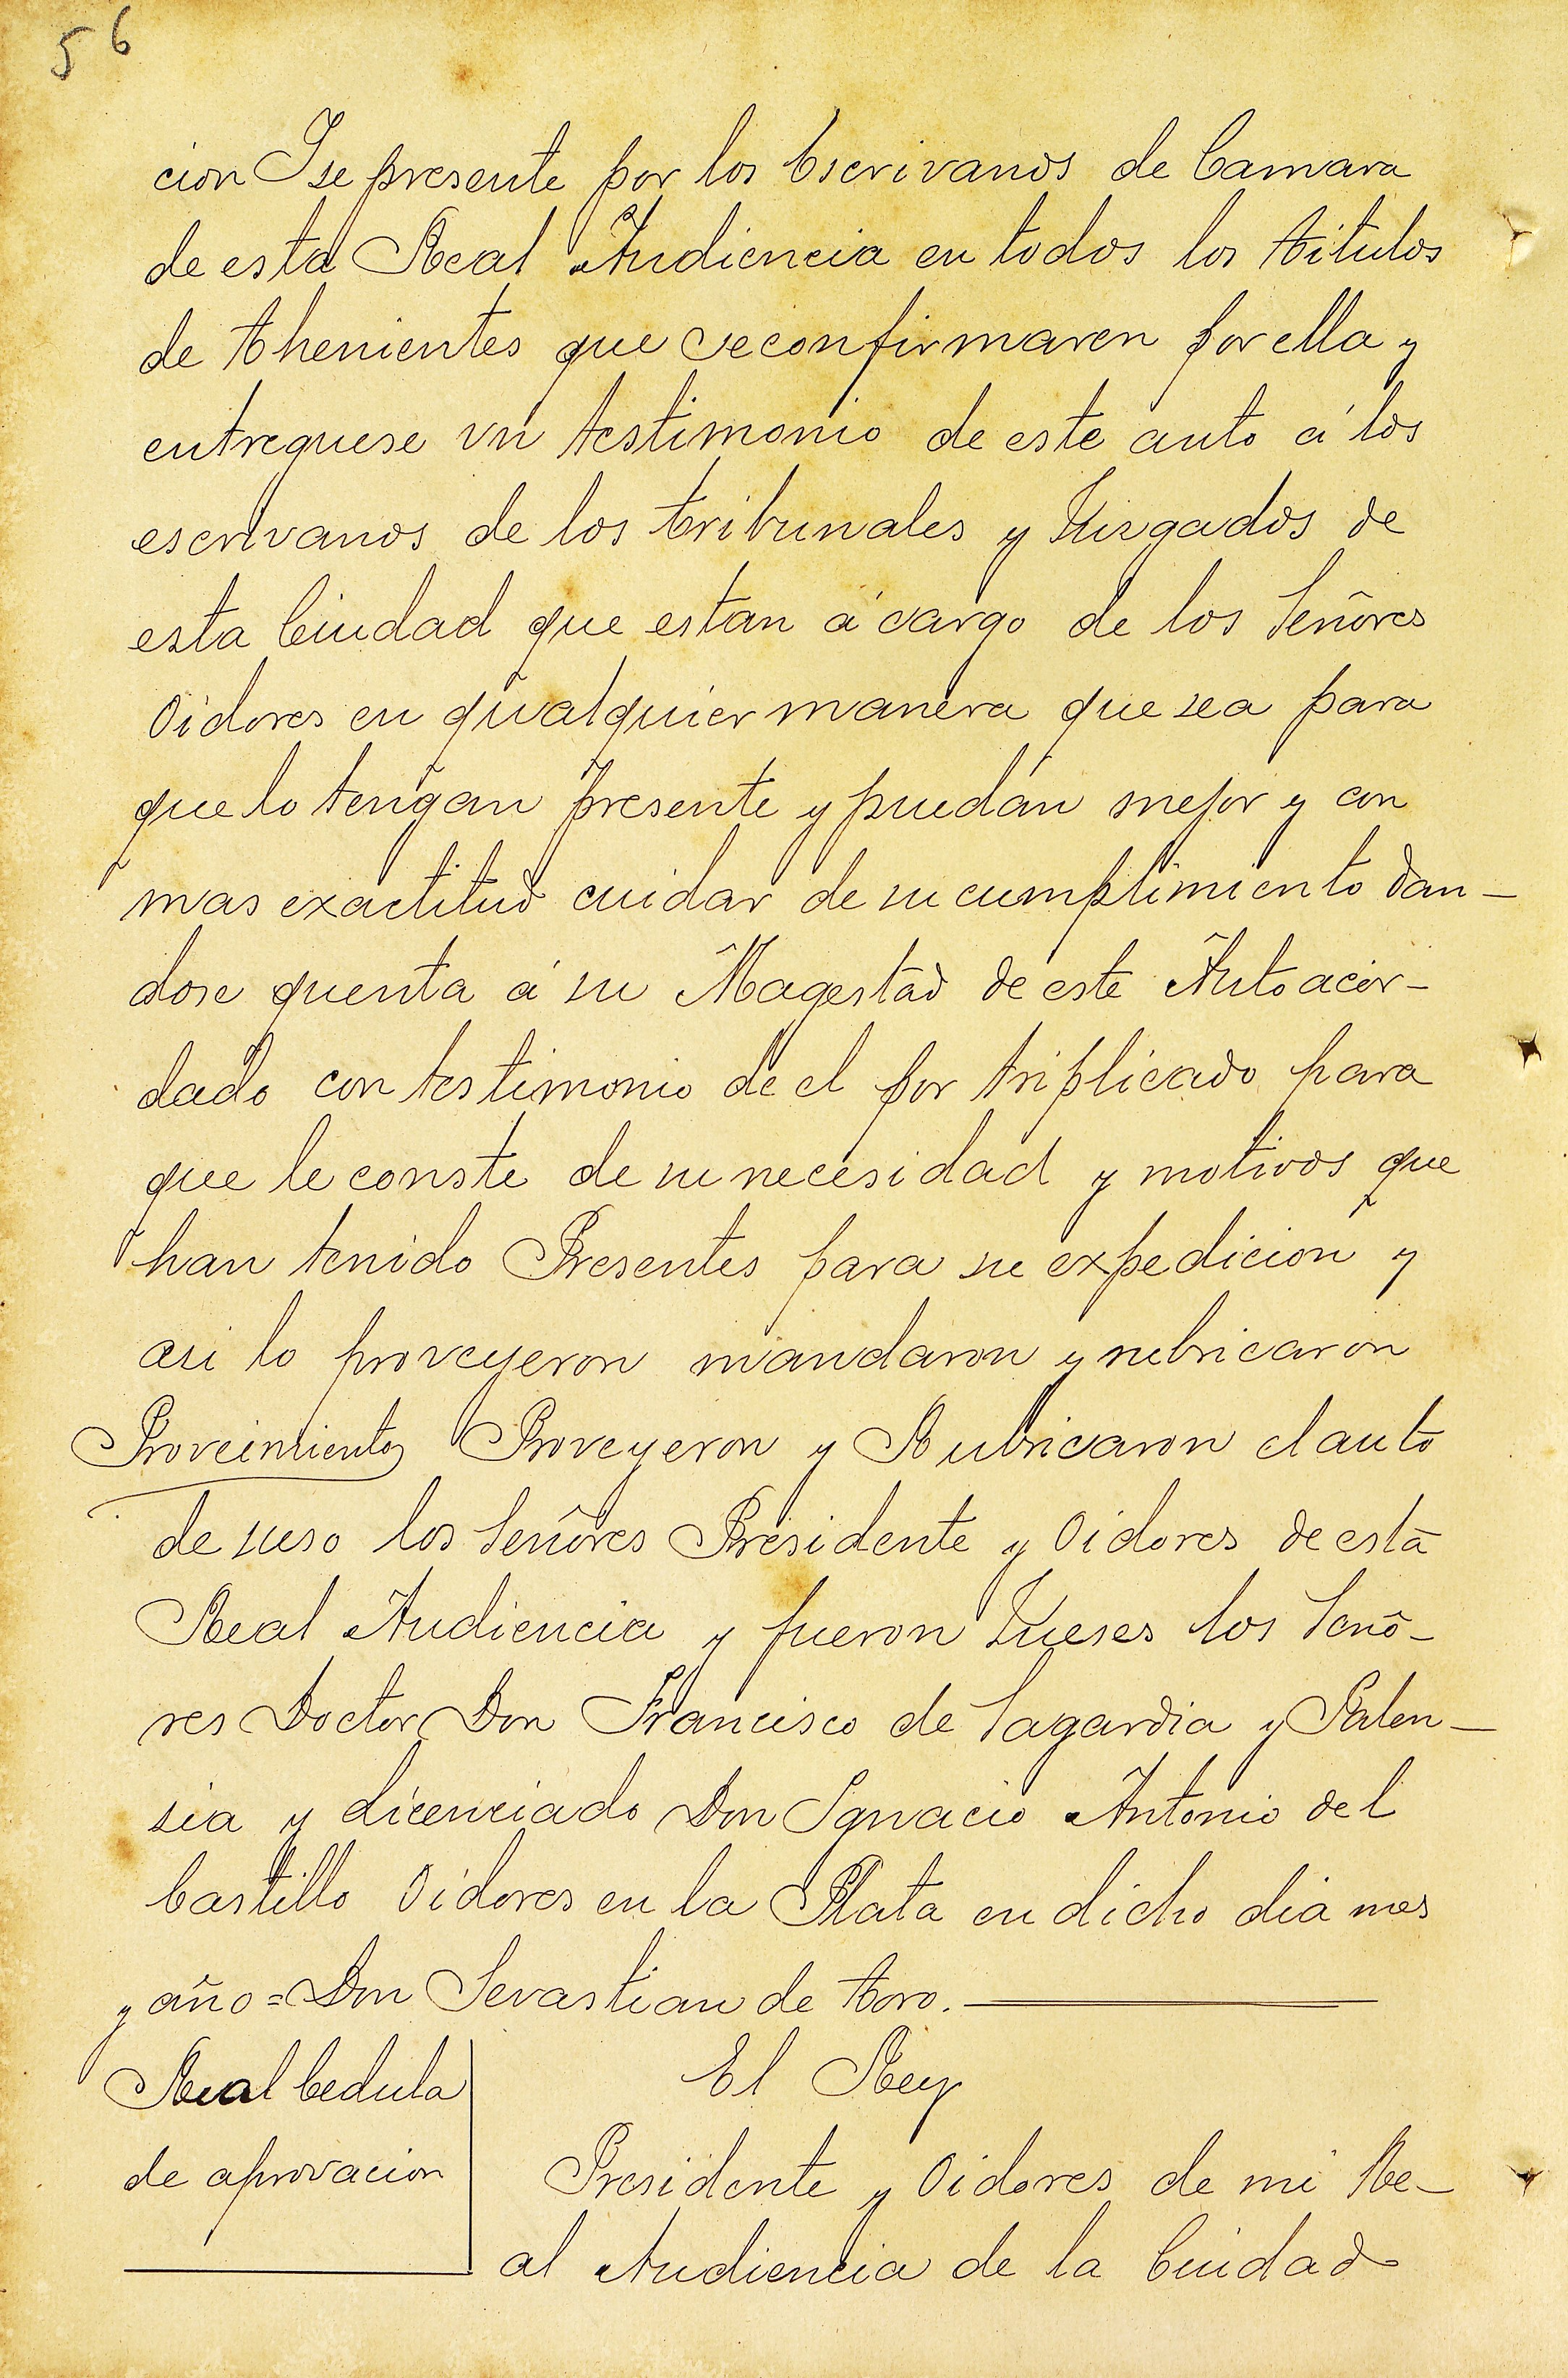 56
cion Y se presente por los Escrivanos de Camara
de esta Real Audiencia en todos los titulos
de thenientes que seconfirmaren por ella y
entreguese vn testimonio de este auto á los
escrivanos de los tribunales y Juzgados de
esta Ciudad que estan á cargo de los Señores
Oidores en qualquier manera que sea para
que lo tengan presente y puedan mejor y con
mas exactitud cuidar de su cumplimiento dan-
dose quenta á su Magestad de este Auto acor-
dado con testimonio de el por triplicado para
que le conste de su necesidad y motivos que
han tenido Presentes para su expedicion y
asi lo proveyeron mandaron y rubricaron
Proveimiento Proveyeron y Rubricaron el auto
de suso los Señores Presidente y Oidores de esta
Real Audiencia y fueron Jueses los Seño-
res Doctor Don Francisco de Sagardia y Palen-
sia y Licenciado Don Ignacio Antonio del
Castillo Oidores en la Plata en dicho dia mes
y año = Don Sevastian de toro.
Real Cedula
de aprovacion
El Rey
Presidente y Oidores de mi Re-
al Audiencia de la Ciudad